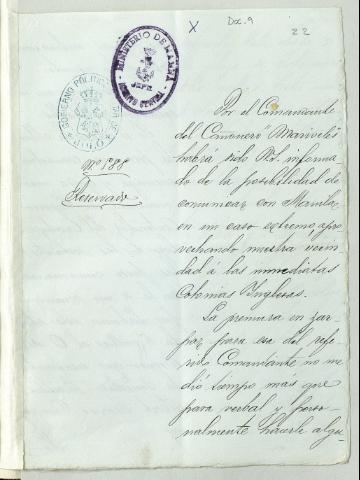 X
Doc. 9
22
MINISTERIO DE MARINA
GOBIERNO POLITICO
JOLO
Nº 188
Reservado
Por el Comandante
del Cañonero Mariveles
habrá sido V.S. informa-
do de la posibilidad de
comunicar con Manila,
en un caso extremo, apro-
vechando nuestra vecin-
dad á las inmediatas
Colonias Inglesas.
La premura en zar-
par para esa del refe-
rido Comandante no me
dió tiempo más que
para verbal y perso-
nalmente hacerle algu-